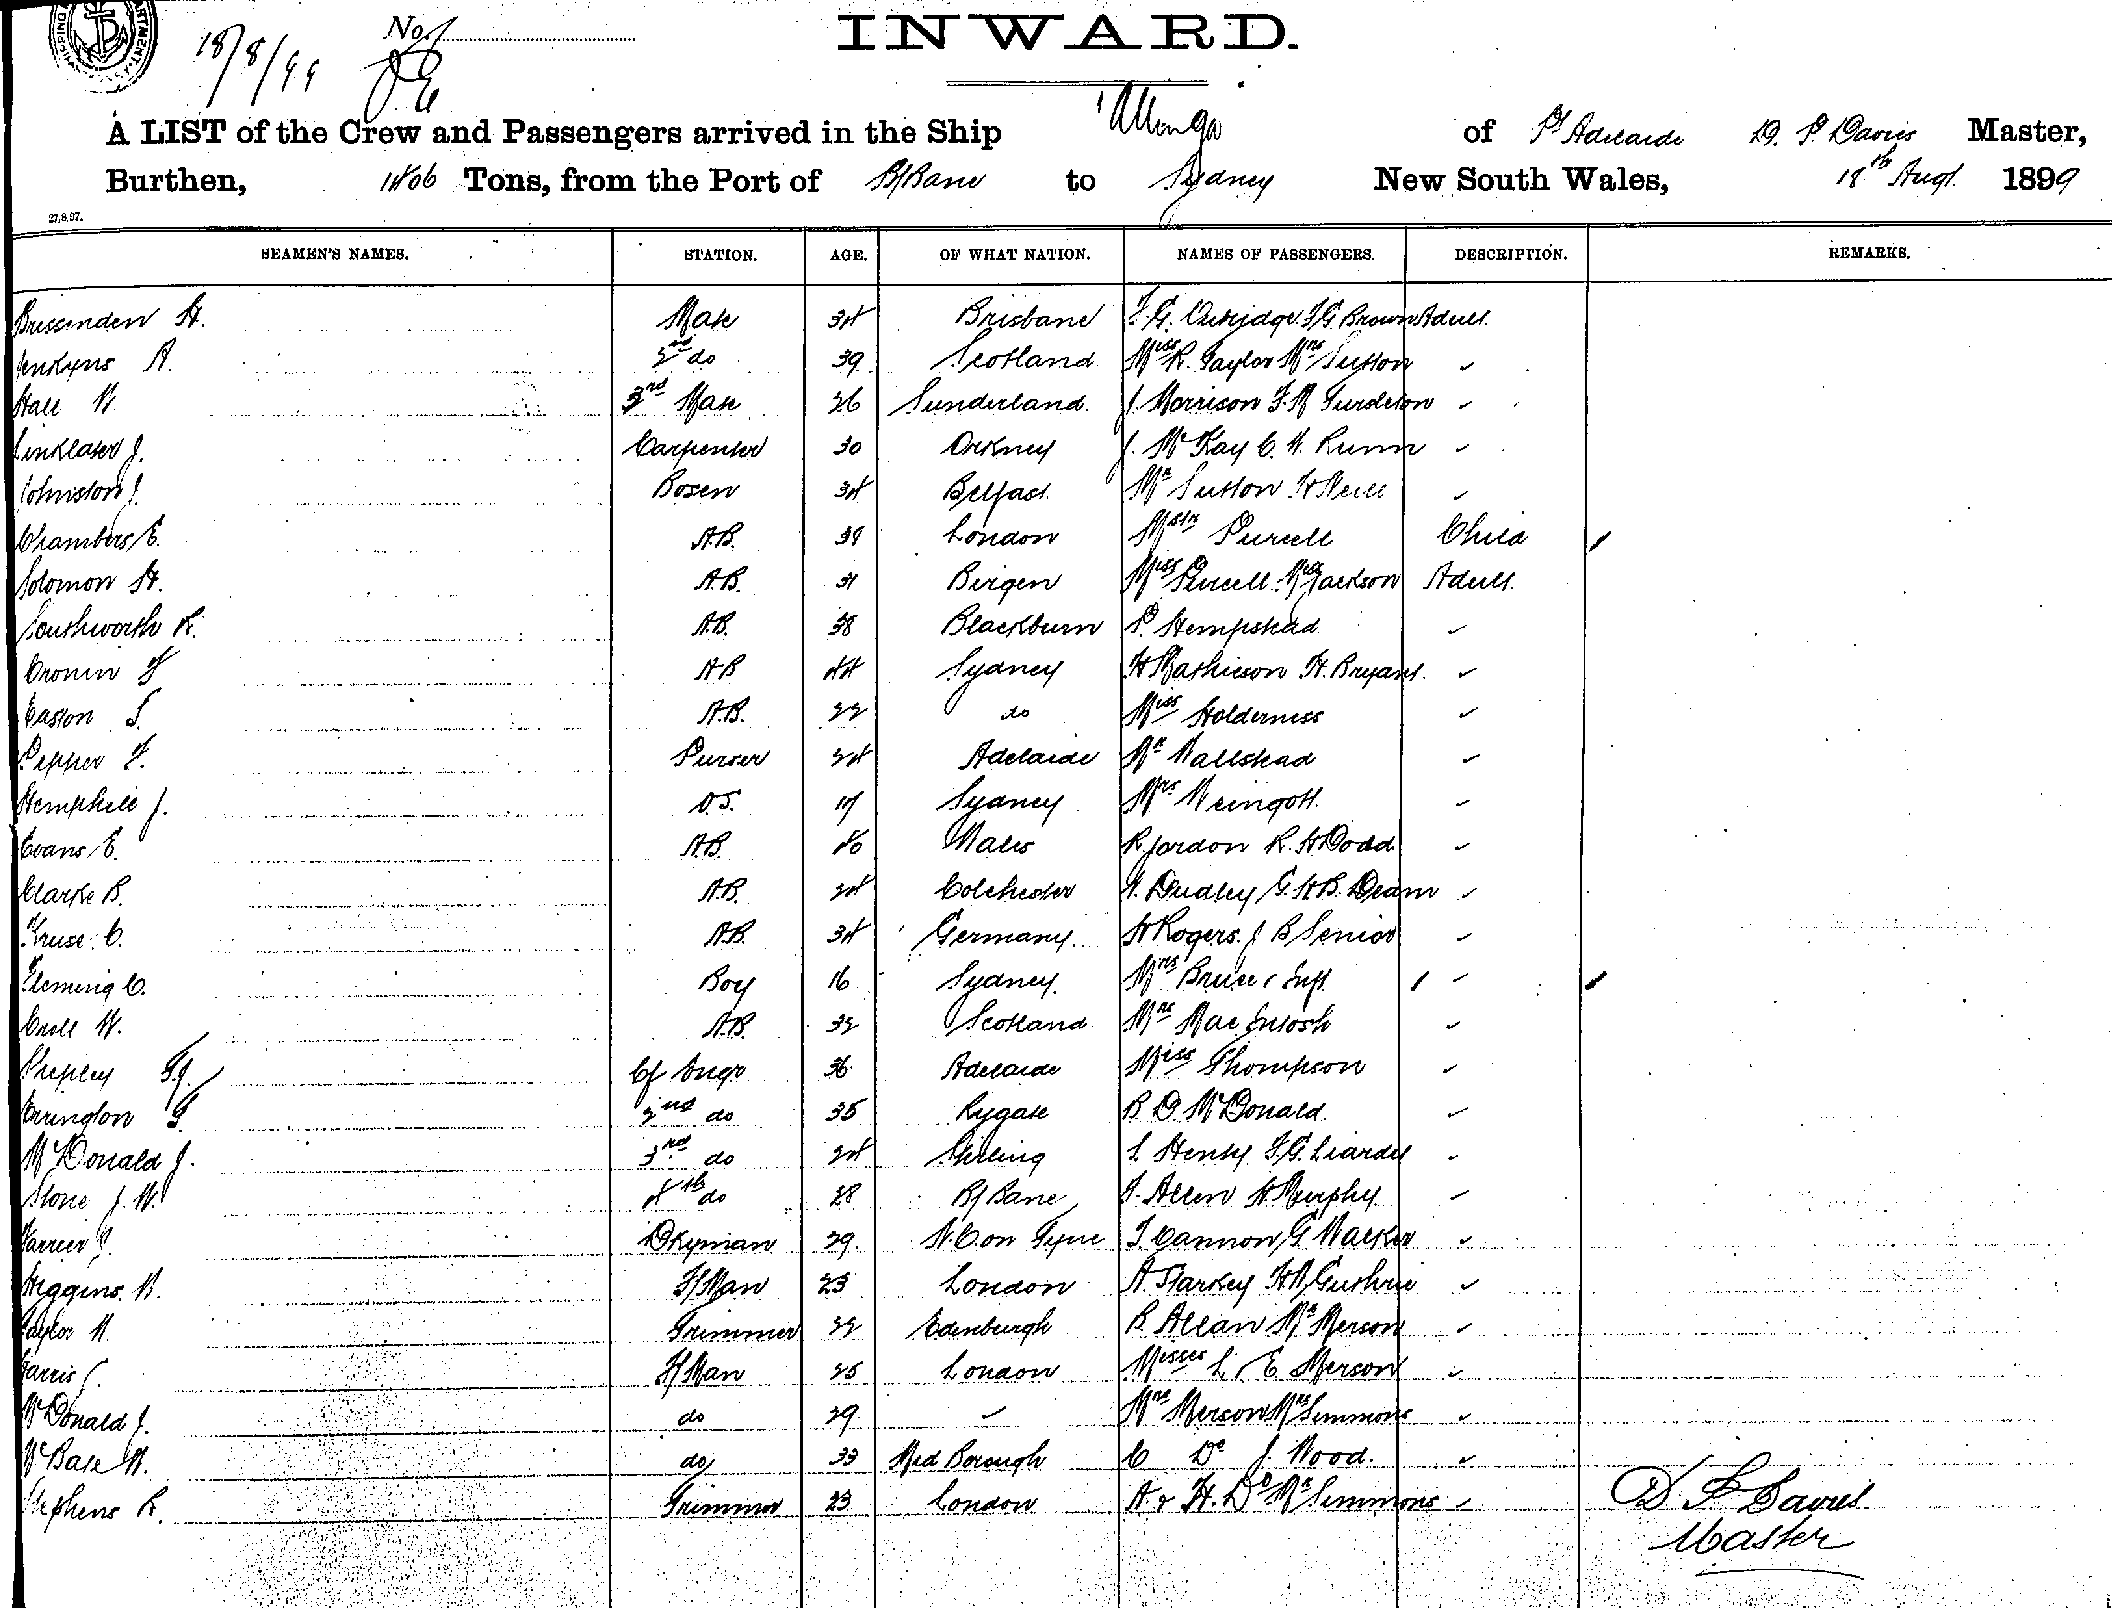 18/8/99 No.
INWARD.
A LIST of the Crew and Passengers arrived in the Ship Allinga of Pt Adelaide D. P. Davies Master,
Burthen, 1406 Tons, from the Port of B/Bane to Sydney New South Wales, 18th Augt. 1899
27.8.97.
SEAMEN'S NAMES. STATION. AGE. OF WHAT NATION. NAMES OF PASSENGERS. DESCRIPTION. REMARKS.
Brissenden H. Mate 34 Brisbane F. G. Outridge F G Brown Adult.
Jenkyns A. 2nd do 39 Scotland Miss R. Taylor Mrs Sutton
Hall W 3rd Mate 26 Sunderland. J. Morrison F. M
Sinklater J. Carpenter 30 Orkney J. Mc Kay C. W.
Johnston J. Bosen 34 Belfast. Mr Sutton H Neill
Chambers E. A.B. London Mstr Purcell Child
Solomon H. A.B. 31 Birgen Miss Purcell. Jackson Adult.
Southworth R. A.B. 38 Blackburn P. Hempstead
Cronin A B 44 Sydney H Mathieson H. Bryant.
Easton S. A.B. 22 do Miss Holderness
Pepper F. Purser 24 Adelaide Mr Wallstead
Hemphill J. O.S. 17 Sydney Mrs Weingott.
Evans E. A.B. 40 Wales R Jordon R. H Dodd
Clarke B. A.B. 24 Colchester Dudley G. H B. Deam
Kruse. C. A.B. 34 Germany. H Rogers. J B Senior
Fleming C. Boy 16 Sydney. Mrs Bruce & Inft. 1
W. A.B. 32 Scotland Mrs MacIntosh
Shepley Cf Engr 36 Adelaide Miss Thompson
Errington G. 2nd do 35 Rygate B D. McDonald.
McDonald J. 3rd do 24 Stirling L Henty F. G. Liardet
Stone J. W. 4th do 28 B/Bane J. Allen H Murphy
Dkyman 29. N. C on Tyne Cannon G Walker
Higgins. W. F/Man 23 London A Starkey H W Guthrie
Taylor W. Trimmer 22 Edinburgh B Allan Mr Merson
Harris F/Man 25 London Misses L & E Merson
McDonald J. do 29 Mrs Merson Mrs Simmons
W. do 33 Mid Borough C Do J. Wood.
Stephens R. Trimmer 23 London A & H. Do Mr Simmons
D. P. Davies.
Master